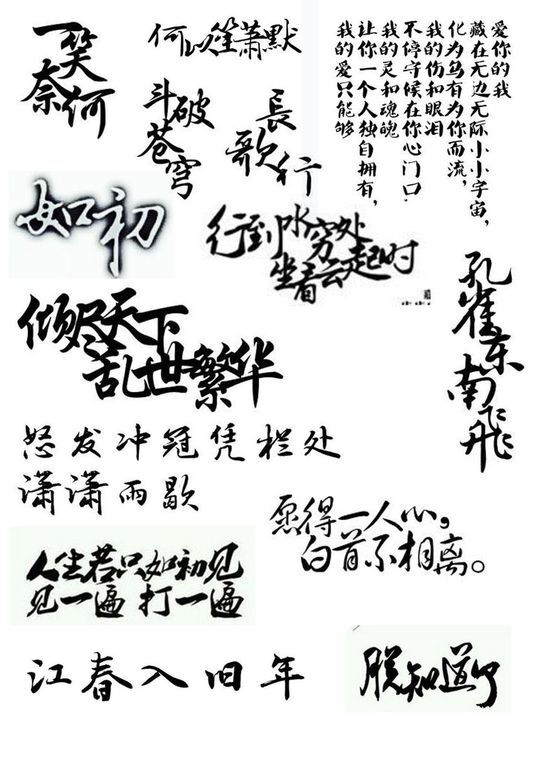 一笑
奈何
何以笙萧默
斗破
苍穹
長歌行
我的爱只能够
让你一个人独自拥有，
我的灵和魂魄
不停守候在你心门口.
我的伤和眼泪
化为乌有为你而流，
藏在无边无际小小宇宙，
爱你的我
如初
行到水穷处
坐看云起时
孔雀东南飞
倾尽天下
乱世繁华
怒发冲冠凭栏处
潇潇雨歇
愿得一人心，
白首不相离。
人生若只如初见
见一遍 打一遍
江春入旧年
朕知道了